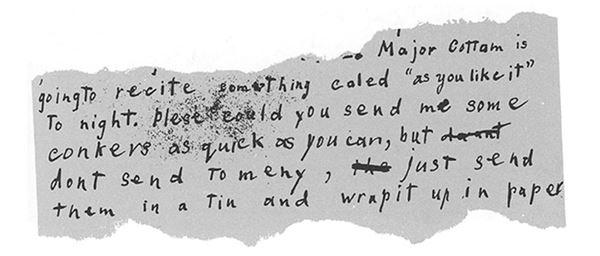 Major Cottam is
going To recite somthing caled "as you like it"
To night. plese could you send me some
conkers as quick as you can, but
dont send To meny, just send
them in a Tin and wrapit up in paper